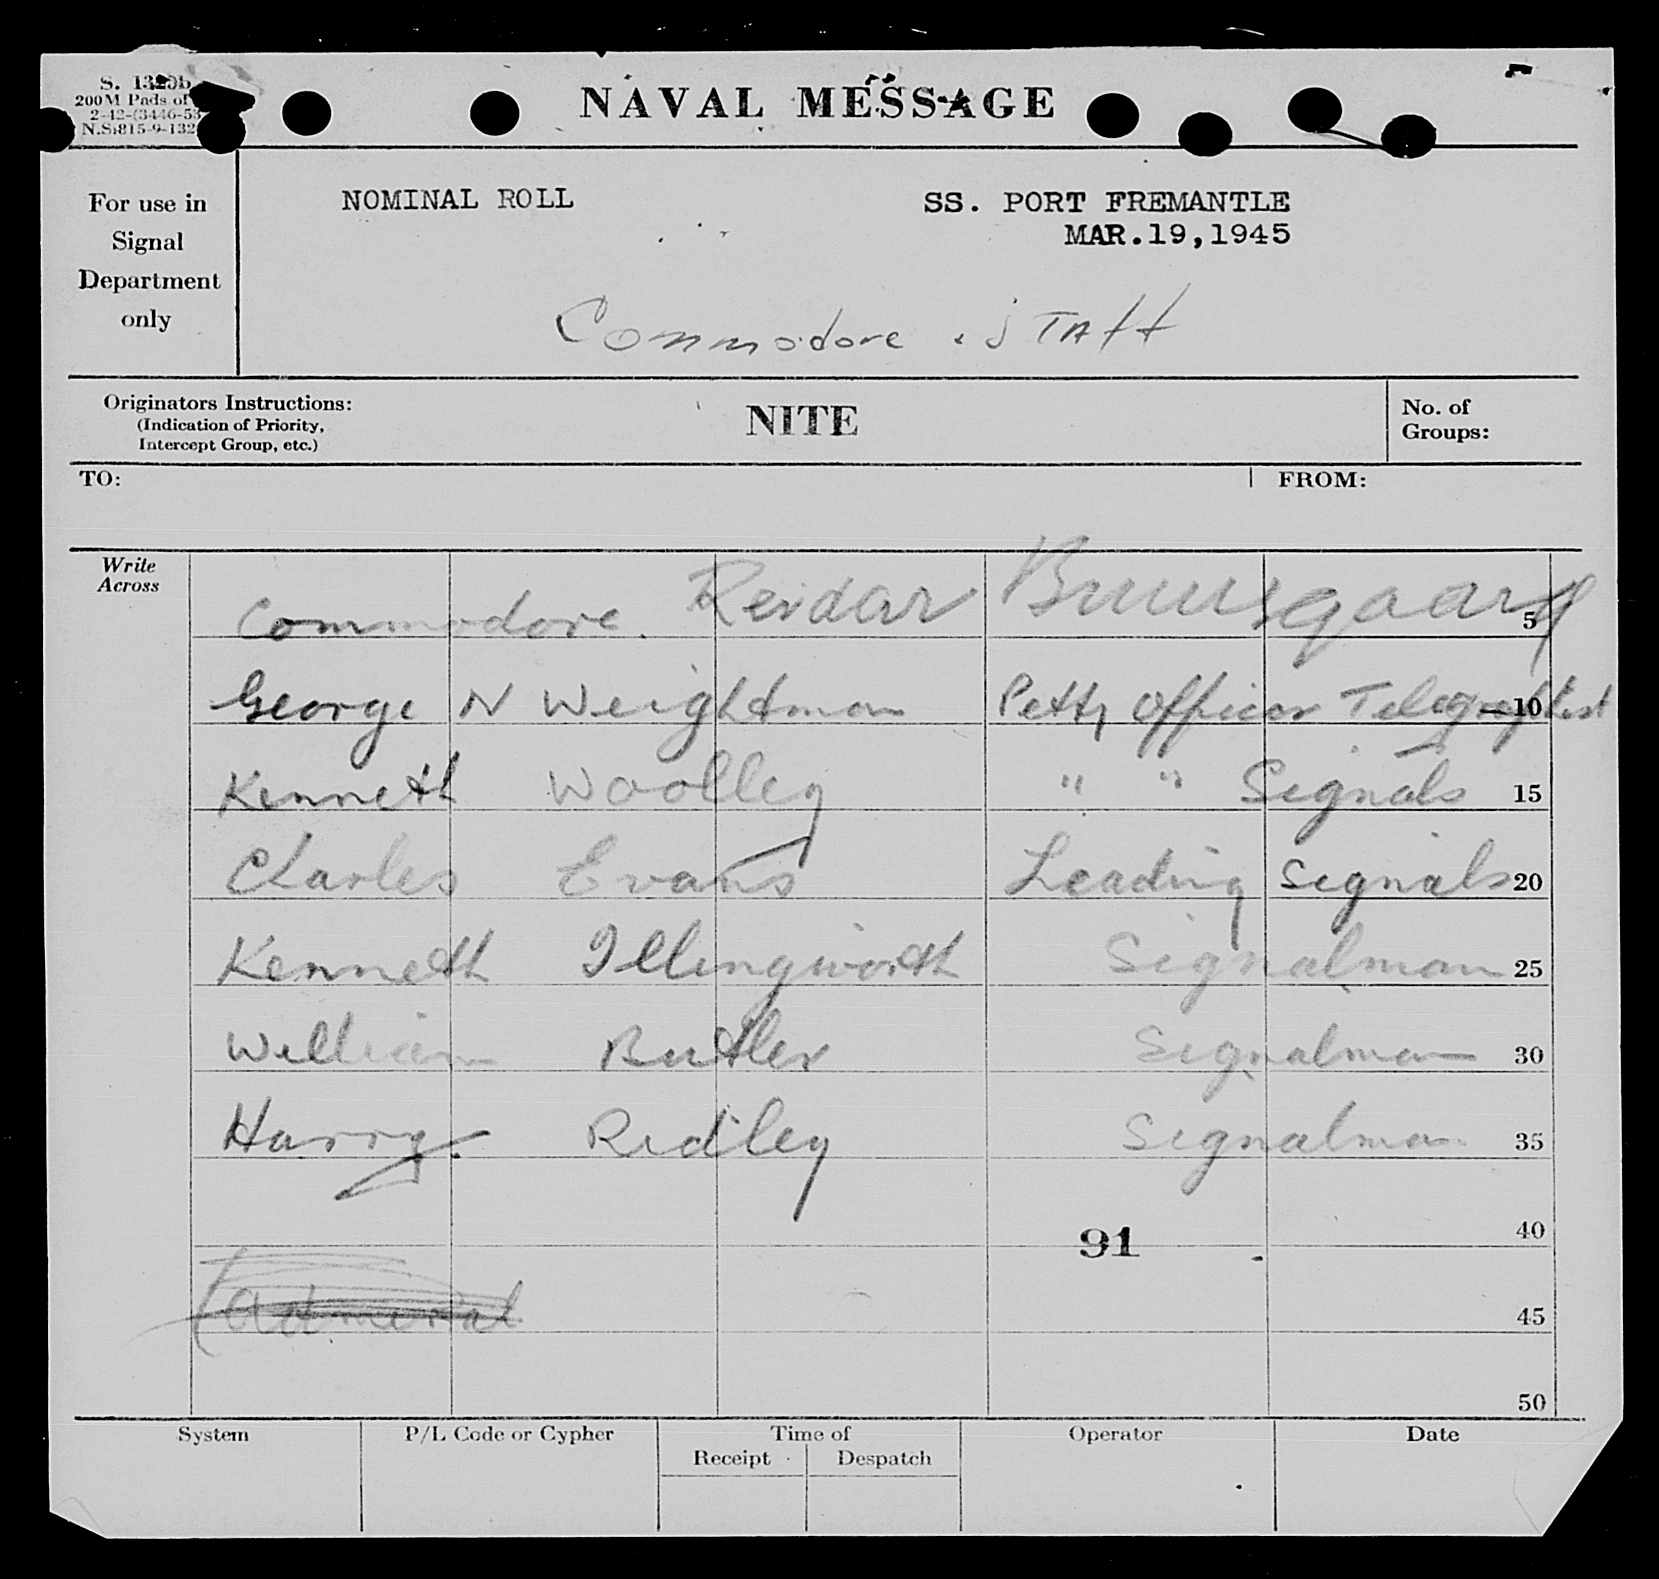 S. 1320b
200M Pads of
N.S. 815-9-132
NAVAL MESSAGE
For use in
Signal
Department
only
NOMINAL ROLL
SS. PORT FREMANTLE
MAR.19,1945
Commodore . STAff
Originators Instructions:
(Indication of Priority,
Intercept Group, etc.)
NITE
No. of
Groups:
TO:
FROM:
Write
Across
Commodore. Reidar 5
George N Weightman Petty Officer Telegraphist 10
Kenneth Woolley " " Signals 15
Charles Evans Leading Signals 20
Kenneth Illingworth Signalman 25
William Butler Signalman 30
Harry. Ridley Signalman 35
40
91
45
50
System
P/L Code or Cypher
Time of
Receipt
Despatch
Operator
Date